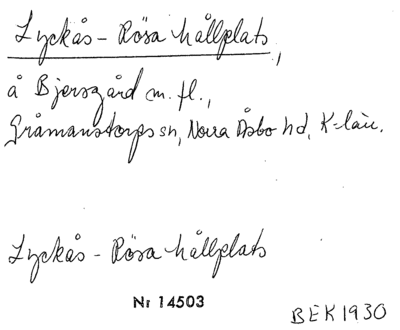 Lyckås - Rösa hållplats,
å Bjersgård m. fl.,
Gråmanstorps sn, Norra Åsbo hd, K-län.
Lyckås - Rösa hållplats
Nr 14503
BEK 1930